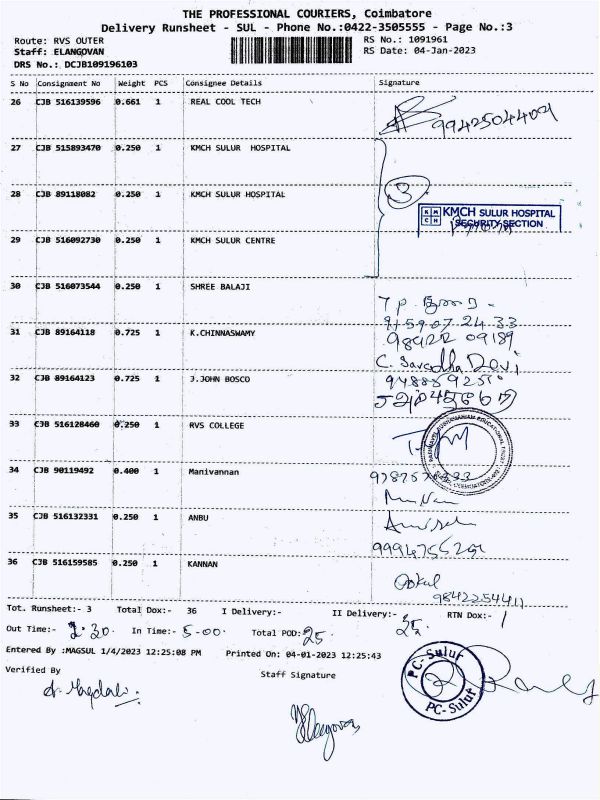 THE PROFESSIONAL COURIERS, Coimbatore
Delivery Runsheet - SUL - Phone No.:0422-3505555 - Page No.:3
Route: RVS OUTER
RS No.: 1091961
Staff: ELANGOVAN
RS Date: 04-Jan-2023
DRS No.: DCJB109196103
S No Consignment No Weight PCS Consignee Details Signature
26 CJB 516139596 0.661 1 REAL COOL TECH
9942504409
27 CJB 515893470 0.250 1 KMCH SULUR HOSPITAL
28 CJB 89118082 0.250 1 KMCH SULUR HOSPITAL
3
KMCH SULUR HOSPITAL
SECURITY SECTION
29 CJB 516092730 0.250 1 KMCH SULUR CENTRE
30 CJB 516073544 0.250 1 SHREE BALAJI
9159072433
31 CJB 89164118 0.725 1 K.CHINNASWAMY
98422 09189
32 CJB 89164123 0.725 1 J.JOHN BOSCO
33 CJB 516128460 0.250 1 RVS COLLEGE
34 CJB 90119492 0.400 1 Manivannan
35 CJB 516132331 0.250 1 ANBU
36 CJB 516159585 0.250 1 KANNAN
9842254411
Tot. Runsheet:- 3 Total Dox:- 36 I Delivery:- II Delivery:- 25 RTN Dox:- 1
Out Time:- 2:30. In Time:- 5-00. Total POD: 25
Entered By :MAGSUL 1/4/2023 12:25:08 PM Printed On: 04-01-2023 12:25:43
Verified By
Staff Signature
PC-Sulur
PC-Sulur